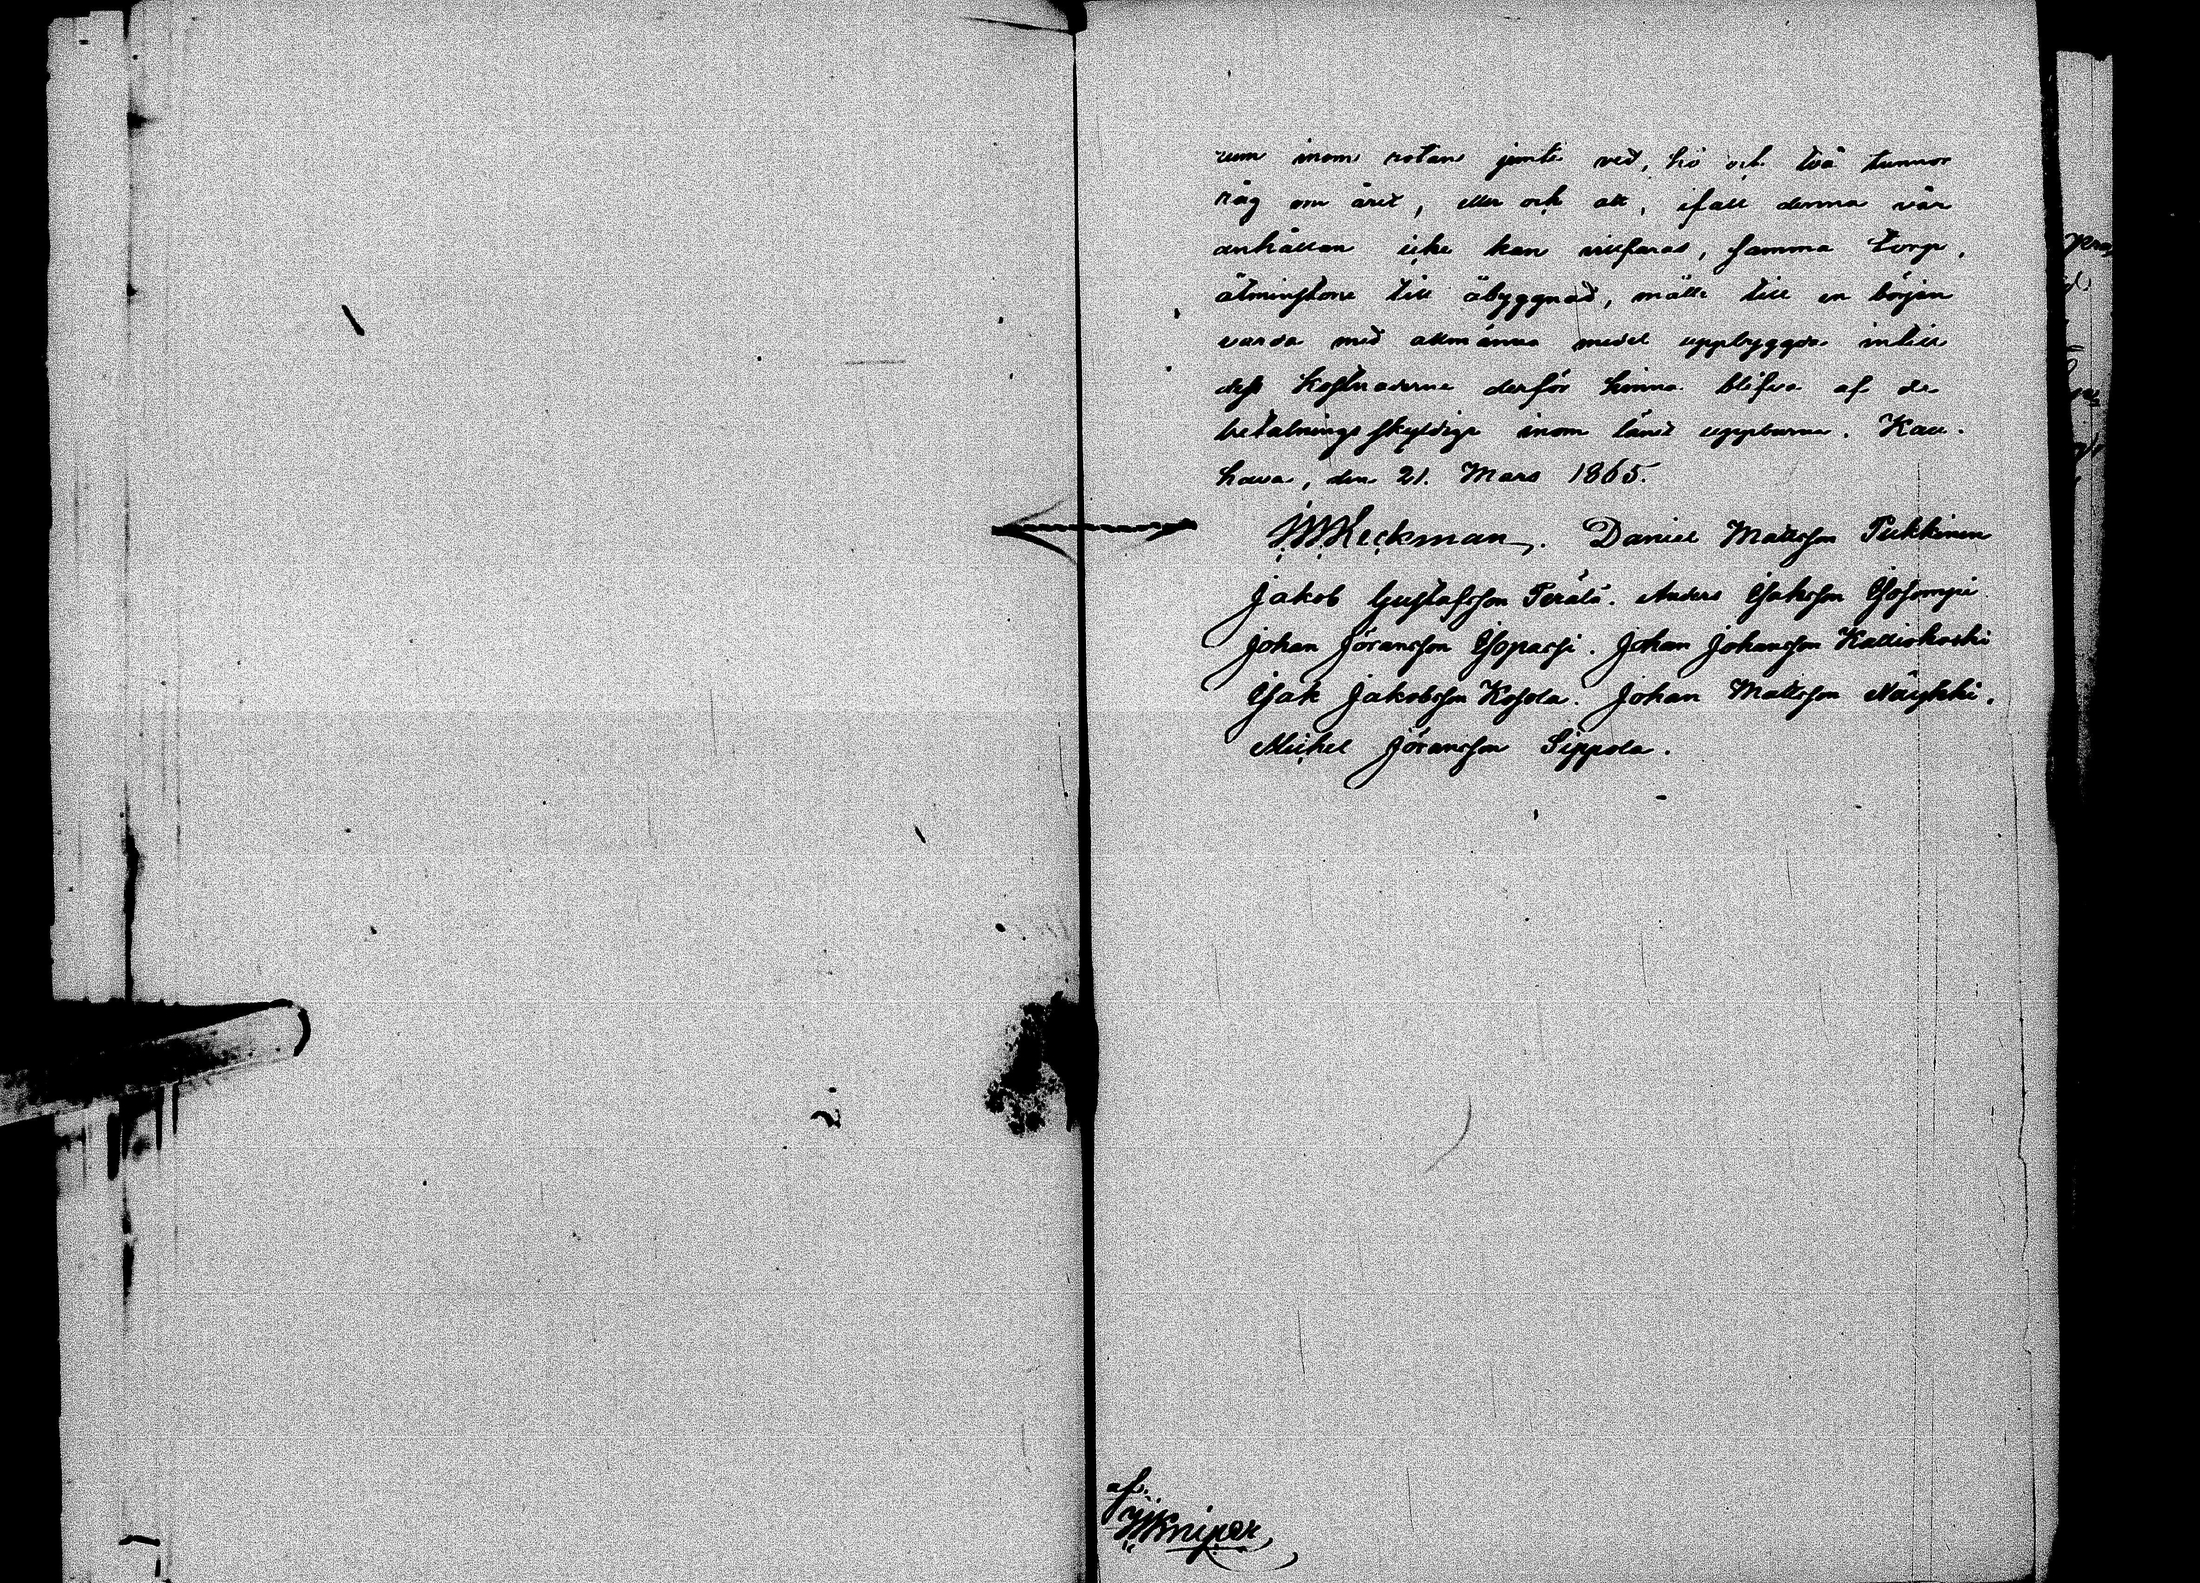 rum inom rotan jemte ved, hö och två tunnor
råg om året, eller och att, ifall denna vår
anhållan icke kan villfaras, samma torp,
åtminstone till åbyggnad, måtte till en början
varda med allmänna medel uppbyggda intill
dess kostnaderne derför hinna blifva af de
betalningsskyldige inom länet uppburna. Kau-
hava, den 21. Mars 1865.
Heckman. Daniel Mattsson Pukkinen
Jakob Gustafsson Perälä. Anders Isaksson Isosomppi
Johan Jöransson Isopassi. Johan Johansson Kalliokoski
Isak Jakobsson Kosola. Johan Mattsson Näykki.
Mickel Jöransson Sippola.
af.
Kniper